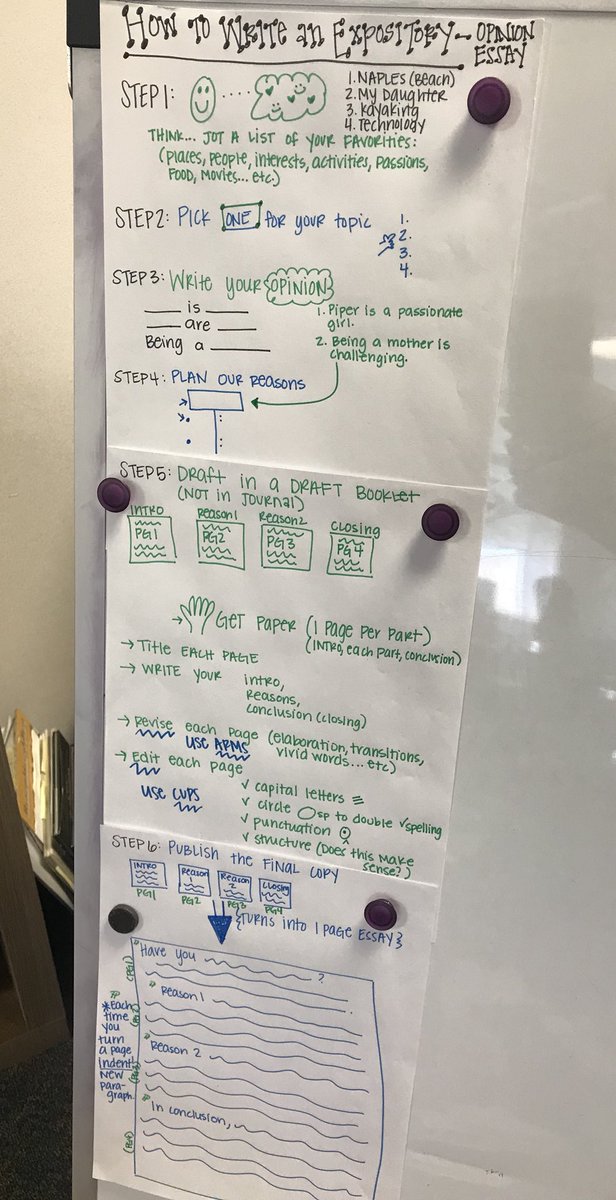 How to Write an Expository - OPINION
ESSAY
STEP 1:
1. NAPLES (Beach)
2. My Daughter
3. Kayaking
4. Technology
THINK... JOT A LIST OF YOUR FAVORITIES:
(places, people, interests, activities, passions,
FOOD, MOVIES... etc.)
STEP 2: PICK ONE for your topic
1.
2.
3.
4.
STEP 3: Write your OPINION
___ is ___
___ are ___
Being a ___
1. Piper is a passionate
girl.
2. Being a mother is
challenging.
STEP 4: PLAN OUR Reasons
STEP 5: Draft in a DRAFT BOOKLET
(NOT in JOURNAL)
INTRO Reason 1 Reason 2 CLOSING
PG1 PG2 PG3 PG4
GET PAPER (1 Page Per Part)
(INTRO, each part, conclusion)
→ Title EACH PAGE
→ WRITE YOUR intro,
Reasons,
conclusion (closing)
→ Revise each page (elaboration, transitions,
USE ARMS vivid words... etc)
→ Edit each page
USE CUPS
✓ capital letters ≡
✓ circle sp to double ✓ spelling
✓ punctuation
✓ structure (Does this make
sense?)
STEP 6: PUBLISH the FINAL COPY
INTRO Reason 1 Reason 2 Closing
PG1 PG2 PG3 PG4
{TURNS into 1 PAGE ESSAY}
Have you ?
(PG1)
Reason 1
(PG2)
Reason 2
(PG3)
In conclusion,
(PG4)
*Each
time
you
turn
a page
indent!
New
para-
graph.